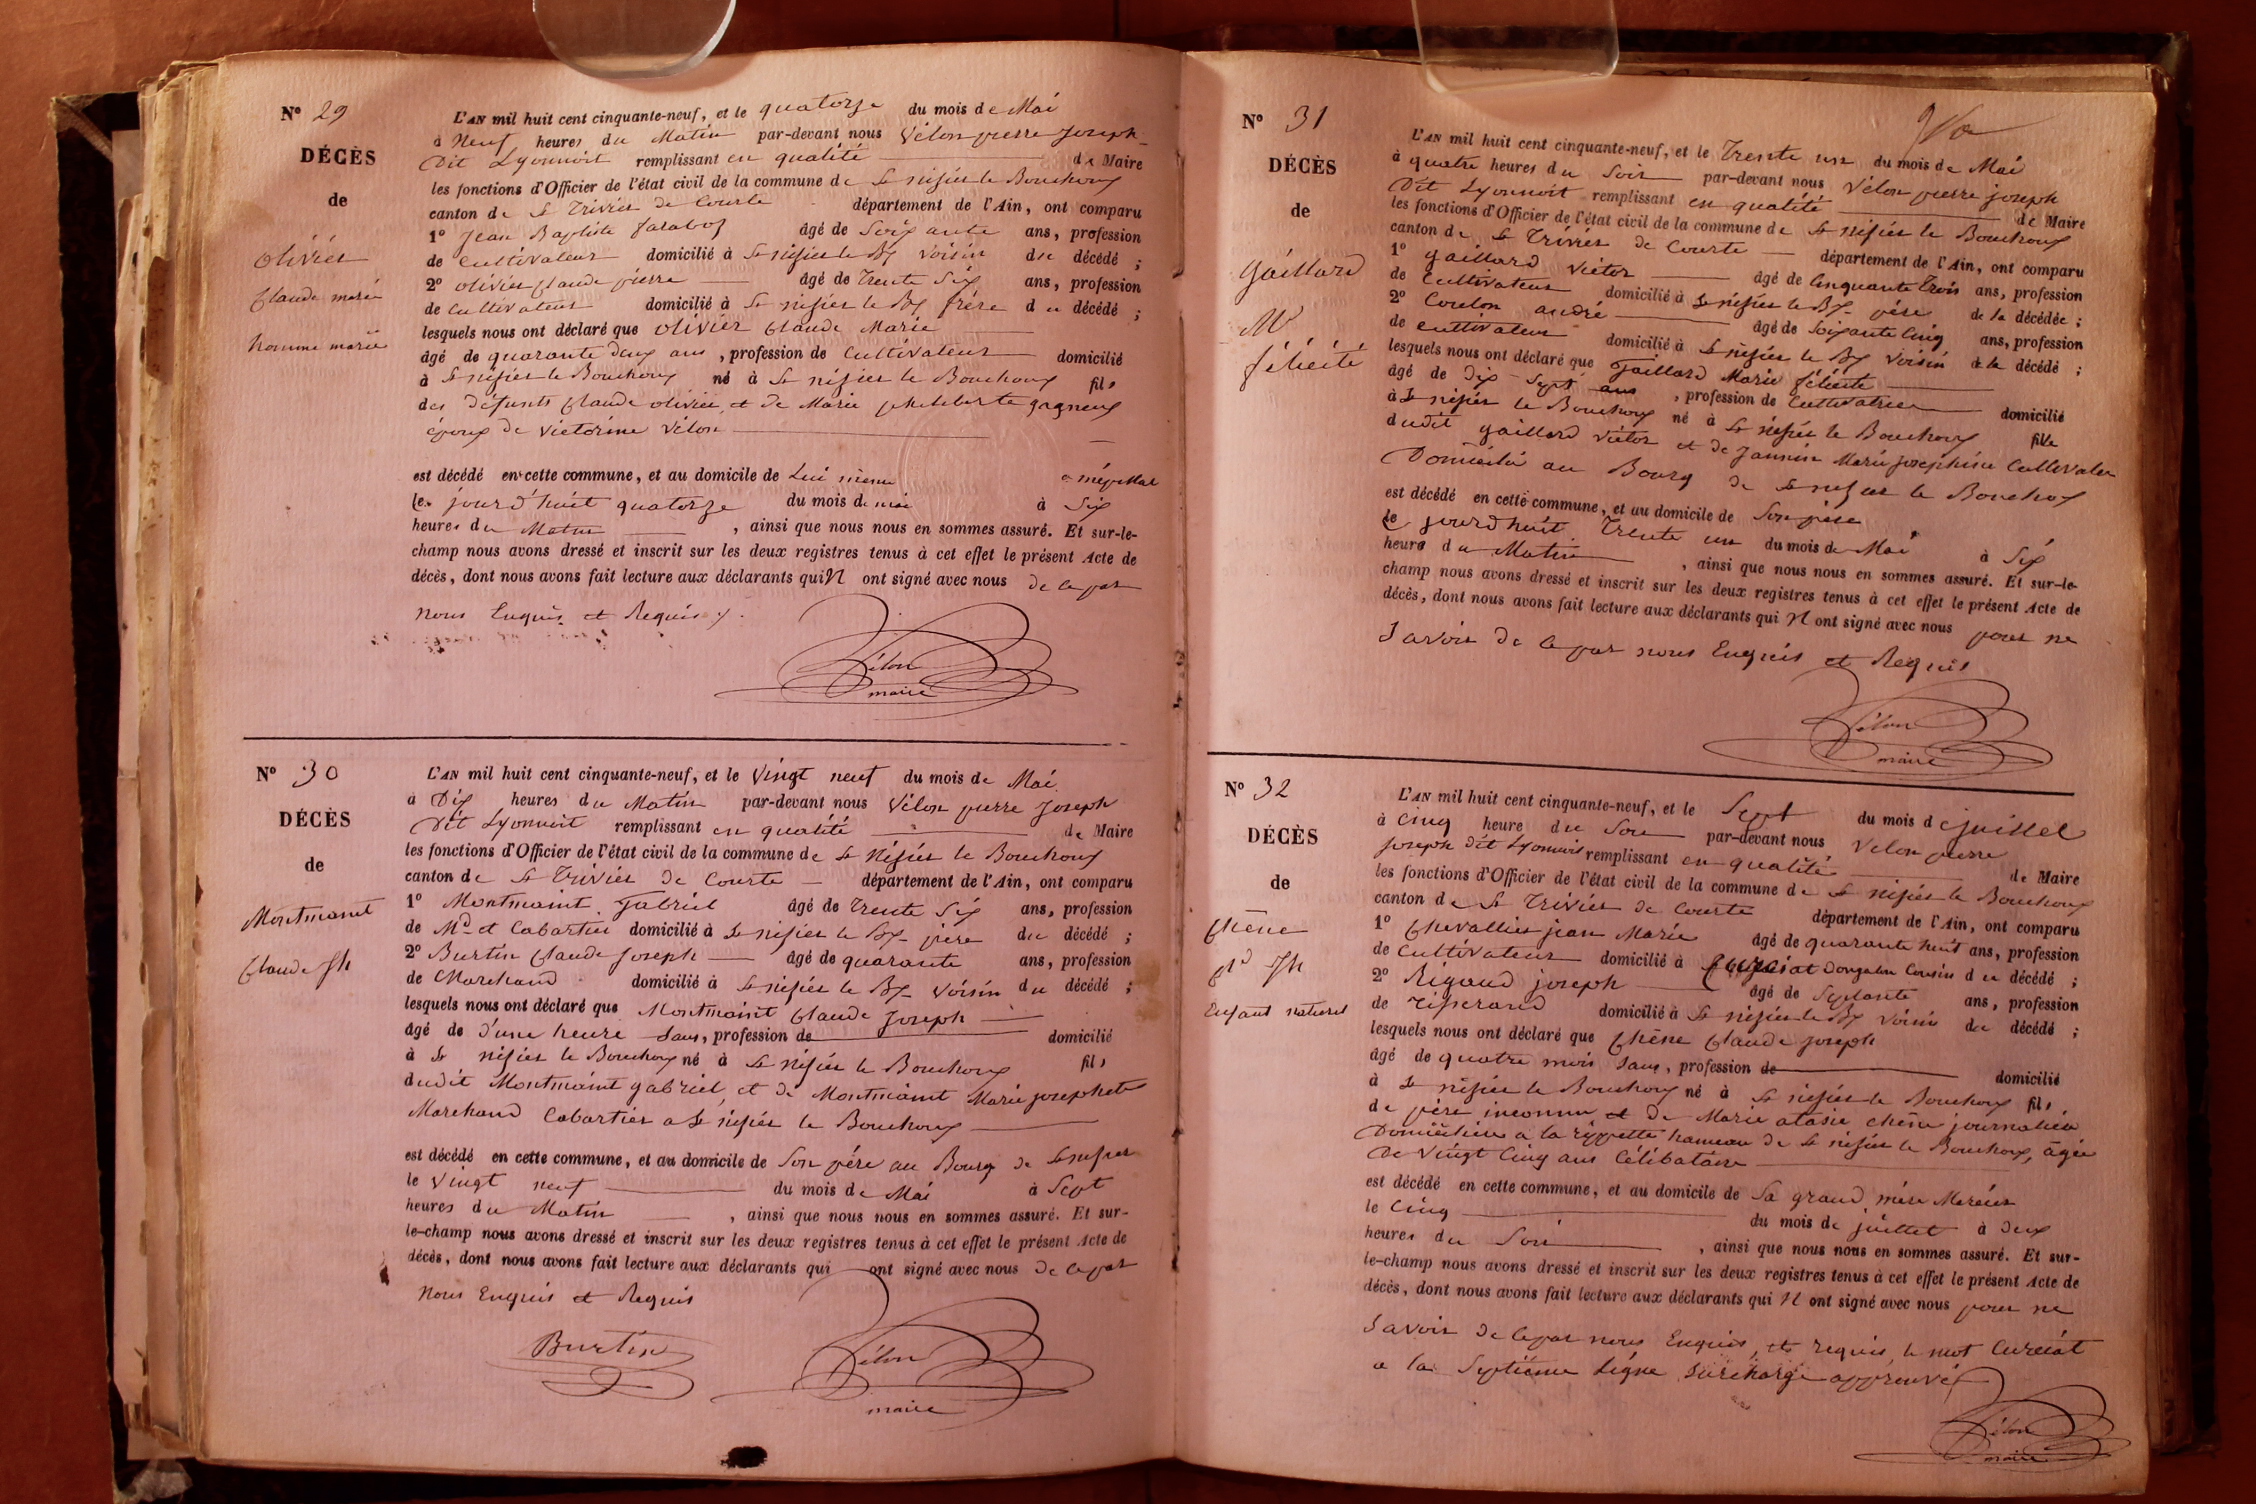 N° 29
DÉCÈS
de
Olivier
Claude marie
homme marié
L'AN mil huit cent cinquante-neuf, et le quatorze du mois de Mai
à Neuf heures du Matin par-devant nous Vélon pierre Joseph
Dit Lyonnoit remplissant en qualité de Maire
les fonctions d'Officier de l'état civil de la commune de St nisier le Bouchoux
canton de St Trivier de Courte département de l'Ain, ont comparu
1° Jean Baptiste âgé de Soixante ans, profession
de Cultivateur domicilié à St nisier le Bx voisin du décédé ;
2° olivier Claude pierre âgé de Trente Six ans, profession
de Cultivateur domicilié à St nisier le Bx frère du décédé ;
lesquels nous ont déclaré que olivier Claude Marie
âgé de quarante deux ans, profession de Cultivateur domicilié
à St nisier le Bouchoux né à St nisier le Bouchoux fils
des défunts Claude olivier, et de Marie philiberte gagneux
époux de Victorine Vélon
est décédé en cette commune, et au domicile de Lui même
le jourd'huit quatorze du mois de mai à Six
heures du Matin , ainsi que nous nous en sommes assuré. Et sur-le-
champ nous avons dressé et inscrit sur les deux registres tenus à cet effet le présent Acte de
décès, dont nous avons fait lecture aux déclarants qui N ont signé avec nous de ce par
nous Enquis et Requis
Vélon
maire
N° 30
DÉCÈS
de
Montmaint
Claude Jh
L'AN mil huit cent cinquante-neuf, et le Vingt neuf du mois de Mai
à Dix heures du Matin par-devant nous Vélon pierre Joseph
Dit Lyonnoit remplissant en qualité de Maire
les fonctions d'Officier de l'état civil de la commune de St Nisier le Bouchoux
canton de St Trivier de Courte département de l'Ain, ont comparu
1° Montmaint Gabriel âgé de Trente Six ans, profession
de Md et Cabartier domicilié à St nisier le Bx père du décédé ;
2° Burtin Claude Joseph âgé de quarante ans, profession
de Marchand domicilié à St nisier le Bx Voisin du décédé ;
lesquels nous ont déclaré que Montmaint Claude Joseph
âgé de d'une heure sans, profession de domicilié
à St nisier le Bouchoux né à St nisier le Bouchoux fils
dudit Montmaint gabriel, et de Montmaint Marie josephete
Marchand Cabartier a St nisier le Bouchoux
est décédé en cette commune, et au domicile de Son père au Bourg de St nisier
le Vingt neuf du mois de Mai à Sept
heures du Matin , ainsi que nous nous en sommes assuré. Et sur-
le-champ nous avons dressé et inscrit sur les deux registres tenus à cet effet le présent Acte de
décès, dont nous avons fait lecture aux déclarants qui ont signé avec nous de ce par
Nous Enquis et Requis
Burtin
Vélon
maire
N° 31
DÉCÈS
de
Gaillard
félicité
L'AN mil huit cent cinquante-neuf, et le Trente un du mois de Mai
à quatre heures du Soir par-devant nous Vélon pierre joseph
Dit Lyonnoit remplissant en qualité de Maire
les fonctions d'Officier de l'état civil de la commune de St nisier le Bouchoux
canton de St Trivier de Courte département de l'Ain, ont comparu
1° gaillard Victor âgé de Cinquante trois ans, profession
de Cultivateur domicilié à St nisier le Bx père de la décédée ;
2° Coulon andré âgé de Soixante Cinq ans, profession
de cultivateur domicilié à St nisier le Bx Voisin de la décédé ;
lesquels nous ont déclaré que Gaillard Marie félicité
âgé de dix Sept ans , profession de Cultivatrice domicilié
à St nisier le Bouchoux né à St nisier le Bouchoux fille
dudit gaillard Victor et de Jannin Marie josephine Cultivateur
Domicilié au Bourg de St nisier le Bouchoux
est décédé en cette commune, et au domicile de Son père
le jourd'huit Trente un du mois de Mai à Six
heure du Matin , ainsi que nous nous en sommes assuré. Et sur-le-
champ nous avons dressé et inscrit sur les deux registres tenus à cet effet le présent Acte de
décès, dont nous avons fait lecture aux déclarants qui N ont signé avec nous pour ne
Savoir de ce par nous Enquis et Requis
Vélon
maire
N° 32
DÉCÈS
de
Chêne
Cd Jh
Enfant naturel
L'AN mil huit cent cinquante-neuf, et le Sept du mois de juillet
à Cinq heure du Soir par-devant nous Velon pierre
joseph dit Lyonnois remplissant en qualité de Maire
les fonctions d'Officier de l'état civil de la commune de St nisier le Bouchoux
canton de St Trivier de Courte département de l'Ain, ont comparu
1° Chevallier jean Marie âgé de quarante huit ans, profession
de Cultivateur domicilié à Curciat Dongalon Cousin du décédé ;
2° Rigaud joseph âgé de Septante ans, profession
de Tisserand domicilié à St nisier le Bx Voisin du décédé ;
lesquels nous ont déclaré que Chêne Claude joseph
âgé de quatre mois sans, profession de domicilié
à St nisier le Bouchoux né à St nisier le Bouchoux fils
de père inconnu et de Marie atasie chêne journalière
Domiciliée a la rippette hameau de St nisier le Bouchoux, âgée
De Vingt Cinq ans Célibataire
est décédé en cette commune, et au domicile de Sa grand mère
le Cinq du mois de juillet à deux
heures du Soir , ainsi que nous nous en sommes assuré. Et sur-
le-champ nous avons dressé et inscrit sur les deux registres tenus à cet effet le présent Acte de
décès, dont nous avons fait lecture aux déclarants qui N ont signé avec nous pour ne
Savoir de ce par nous Enquis, et requis, le mot Curciat
a la Septième Ligne Surchargé approuvé
Vélon
maire